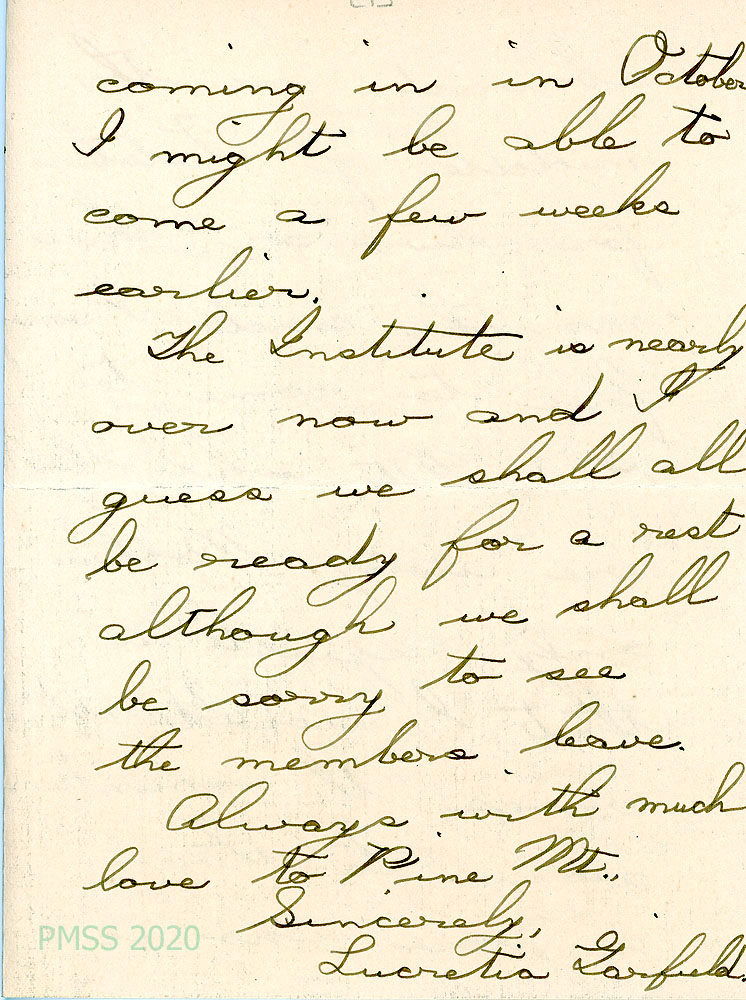 coming in in October
I might be able to
come a few weeks
earlier.
The Institute is nearly
over now and I
guess we shall all
be ready for a rest
although we shall
be sorry to see
the members leave.
Always with much
love to Pine Mt.,
Sincerely,
Lucretia Garfield.
PMSS 2020